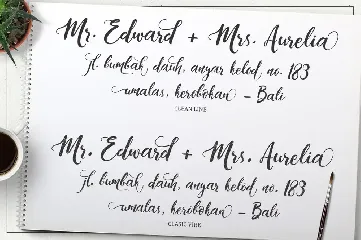 Mr. Edward + Mrs. Aurelia
jl. bumbak, dauh, anyar kelod, no. 183
umalas, kerobokan - Bali
CLEAN LINE
Mr. Edward + Mrs. Aurelia
jl. bumbak, dauh, anyar kelod, no. 183
umalas, kerobokan - Bali